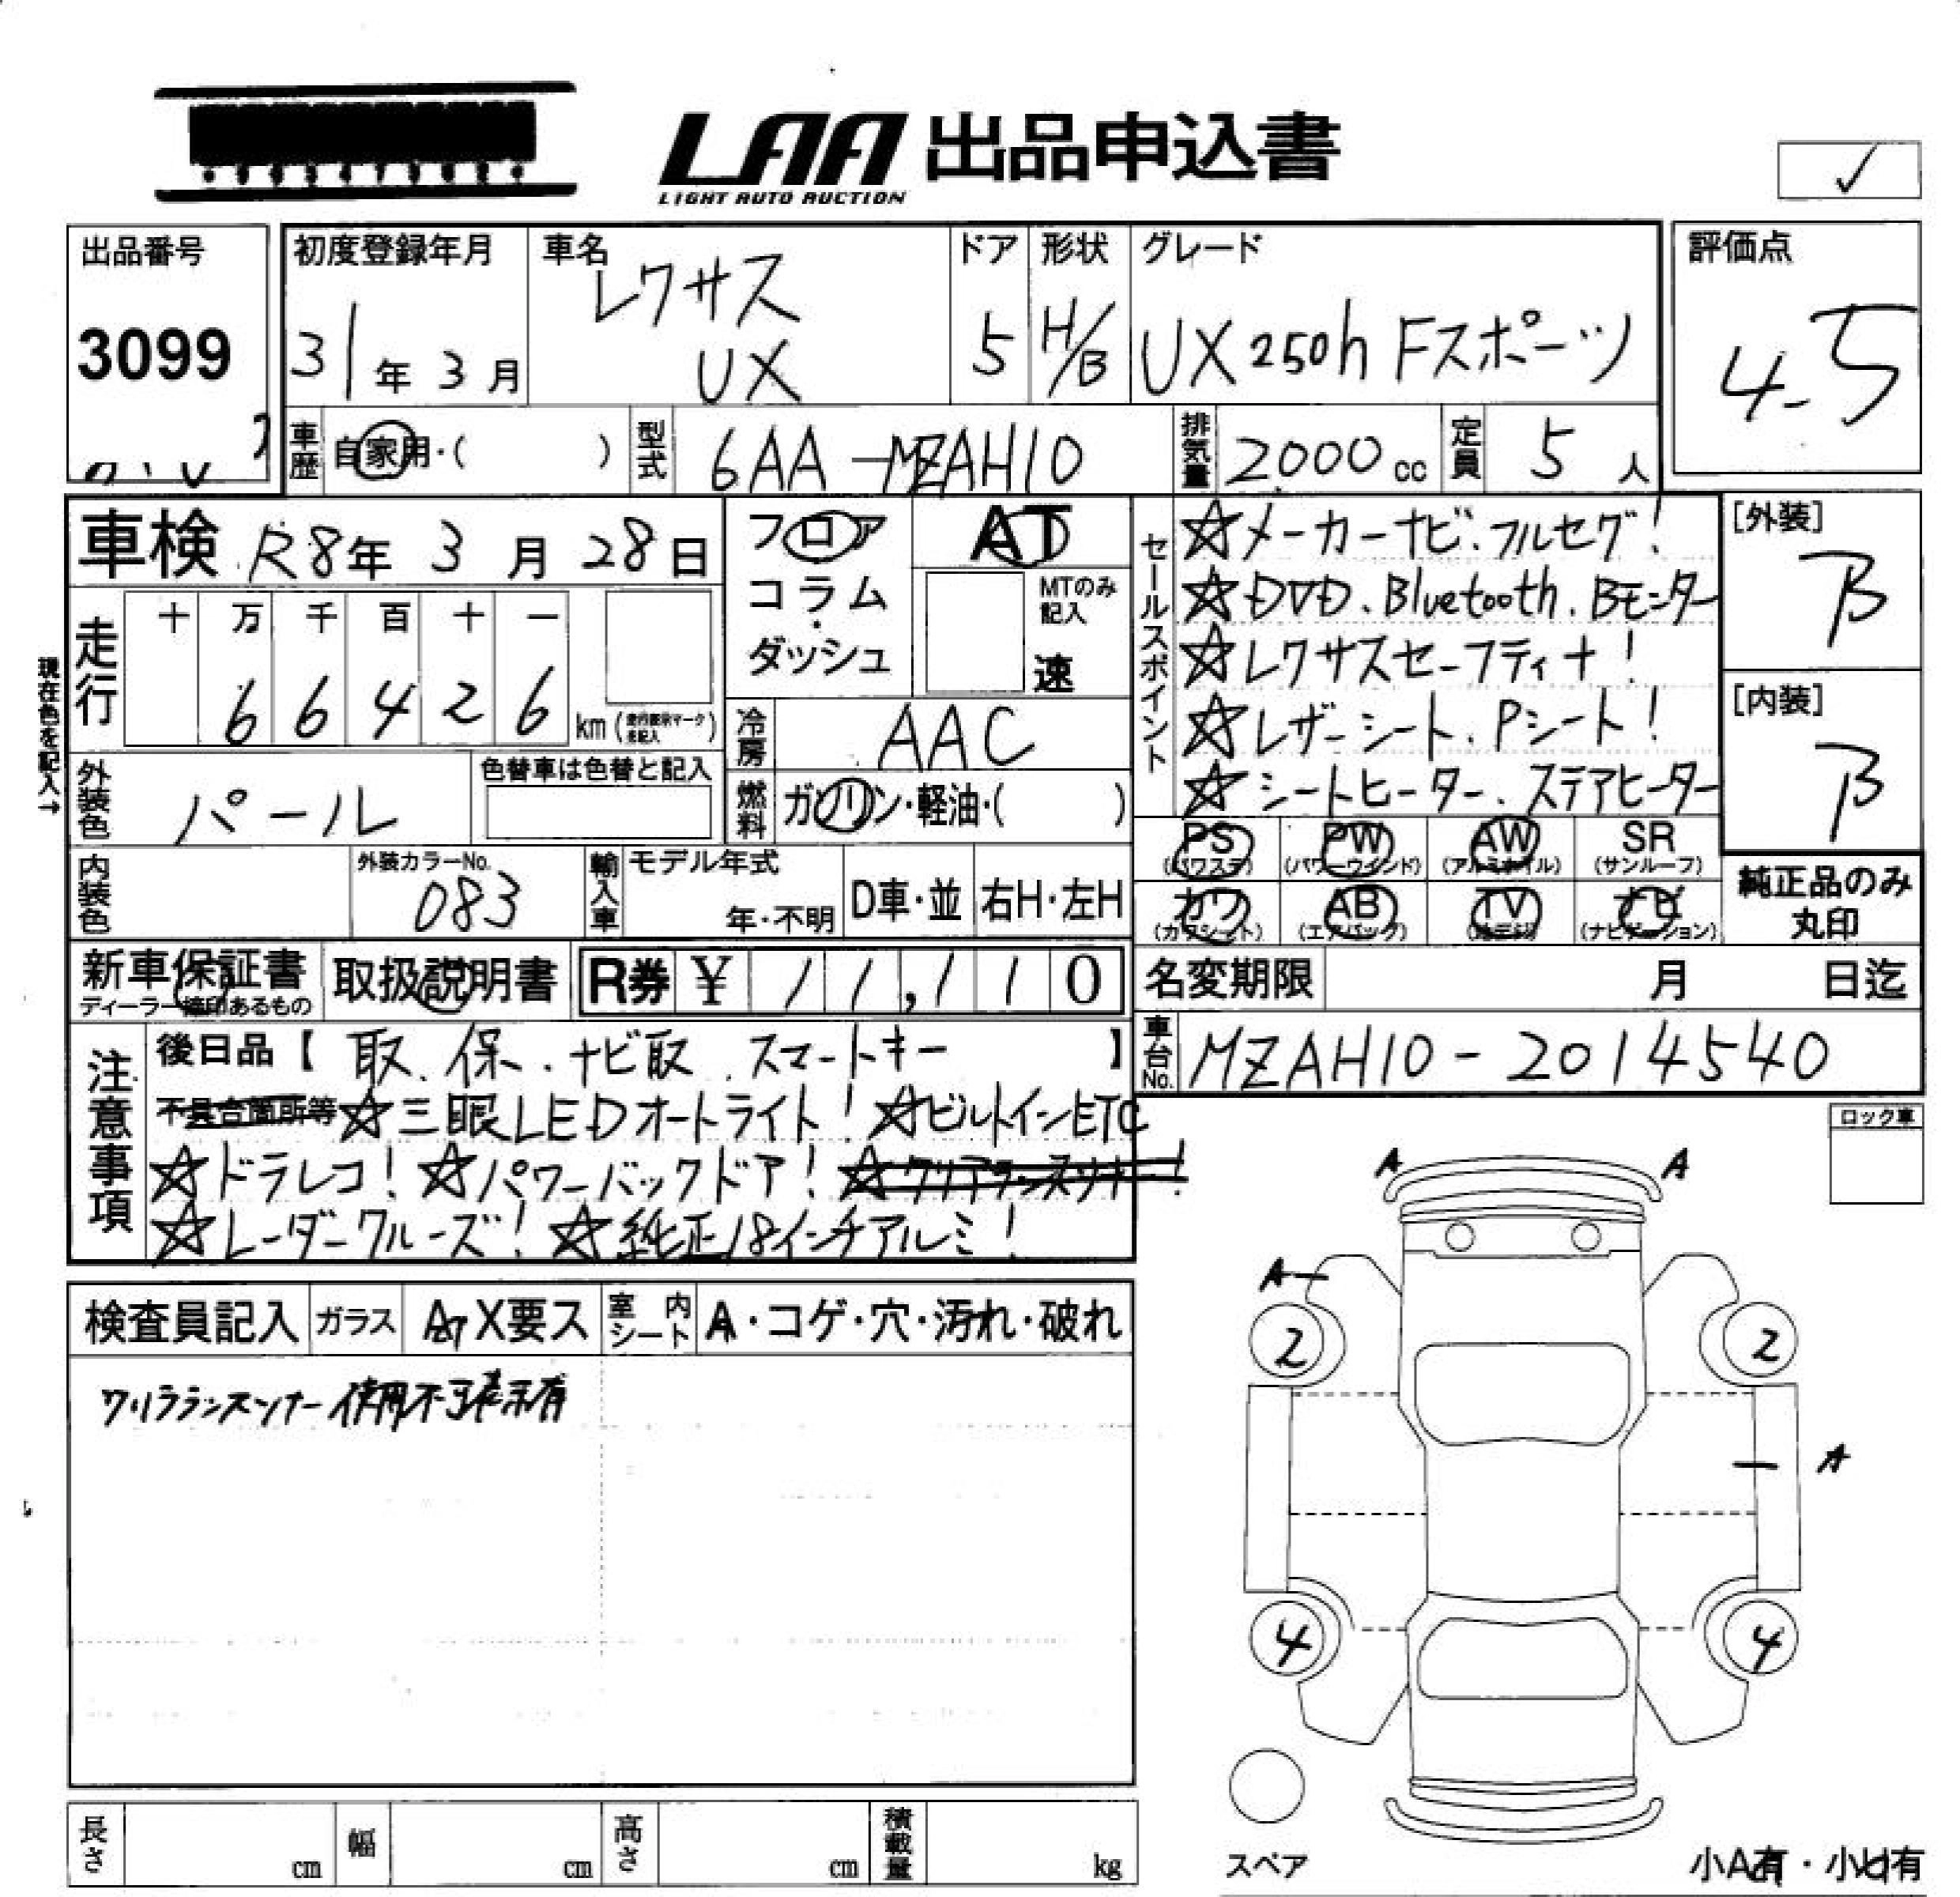 LAA 出品申込書
LIGHT AUTO AUCTION
✓
出品番号
3099
初度登録年月
31年3月
車名
レクサス
UX
ドア
5
形状
H/B
グレード
UX250h Fスポーツ
評価点
4.5
車歴 自家用・( )
型式 6AA-MZAH10
排気量 2000cc
定員 5人
車検 R8年3月28日
フロア
コラム
・
ダッシュ
AT
MTのみ記入
速
セールスポイント
☆メーカーナビ、フルセグ!
☆DVD、Bluetooth、Bモニター
☆レクサスセーフティ+!
☆レザーシート、Pシート!
☆シートヒーター、ステアヒーター
[外装]
B
[内装]
B
現在色を記入→
走行
十 万 千 百 十 一
6 6 4 2 6 km
冷房 AAC
外装色 パール
色替車は色替と記入
燃料 ガソリン・軽油・( )
PS (パワステ)
PW (パワーウインド)
AW (アルミホイル)
SR (サンルーフ)
カワ (カワシート)
AB (エアバック)
TV (地デジ)
ナビ (ナビゲーション)
純正品のみ
丸印
内装色
外装カラーNo.
083
輸入車 モデル年式
年・不明
D車・並
右H・左H
新車保証書
ディーラー捺印あるもの
取扱説明書
R券 ¥ 11,110
名変期限 月 日迄
車台No. MZAH10-2014540
注意事項
後日品【取、保、ナビ取、スマートキー】
不具合箇所等 ☆三眼LEDオートライト! ☆ビルトインETC
☆ドラレコ! ☆パワーバックドア! ☆クリアランスソナー!
☆レーダークルーズ! ☆純正18インチアルミ!
ロック車
A A
A
2 2
A
4 4
検査員記入
ガラス
A・X要ス
室内シート
A・コゲ・穴・汚れ・破れ
クリアランスソナー使用不可表示有
長さ cm
幅 cm
高さ cm
積載量 kg
スペア
小A有・小U有